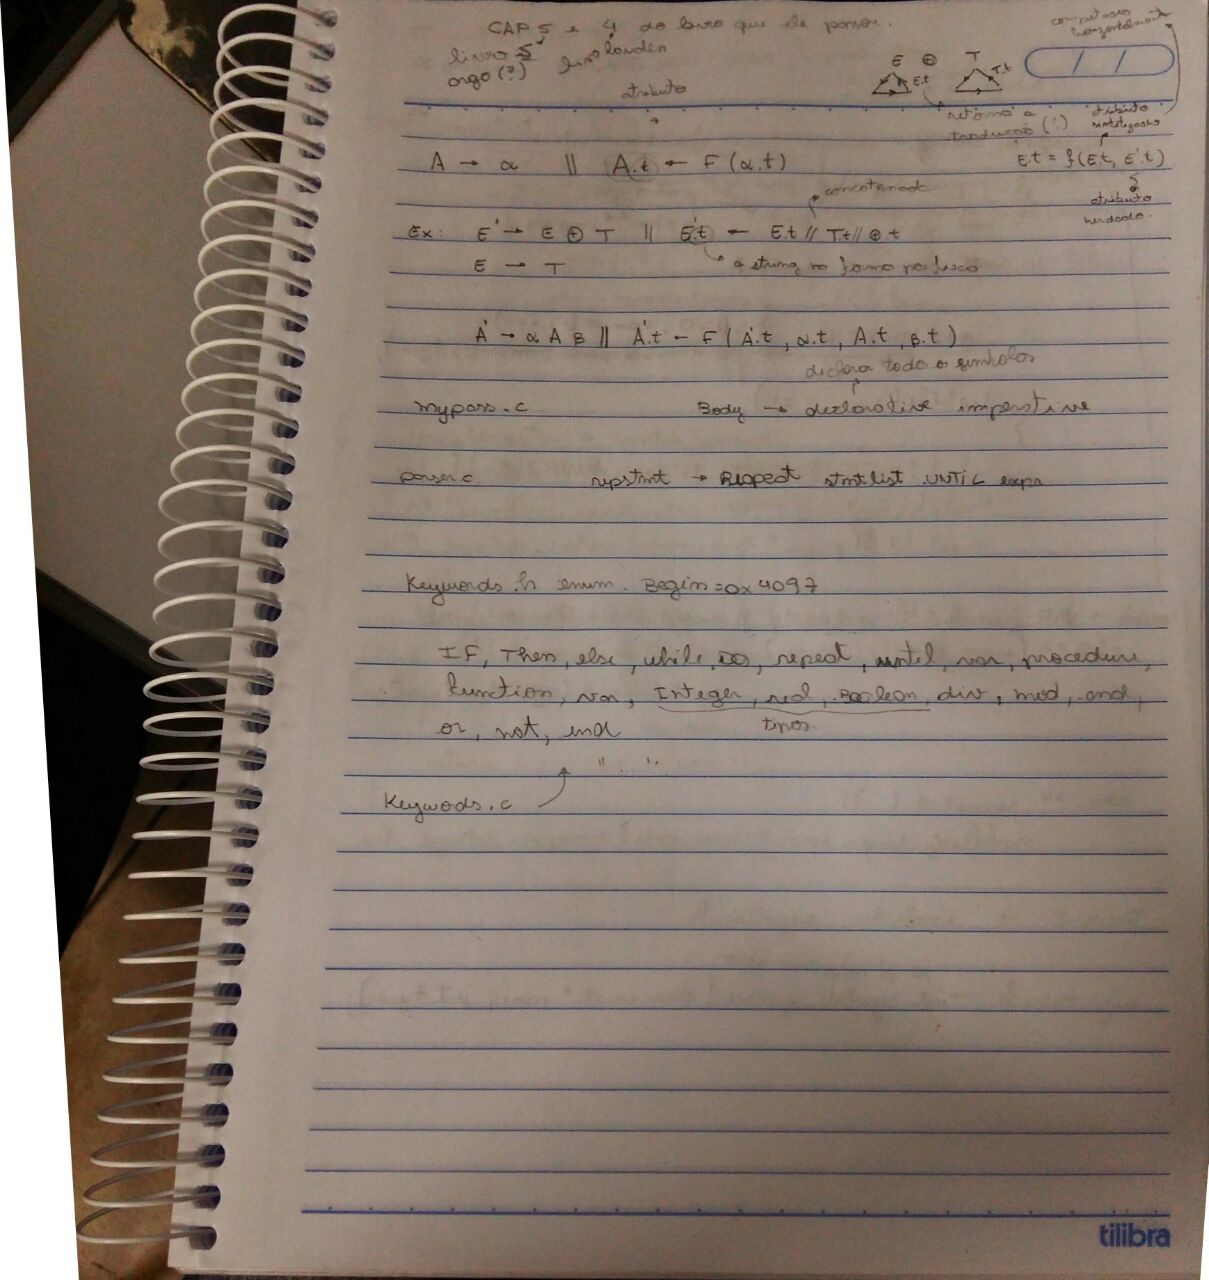 CAP 5 e 4 do livro que ele passou.
livro 5
(?) louden
atributo
E ⊕ T
E.t T.t
horizontalmente
retorna a
tradução (?)
atributo
sintetizado
A → α || A.t ← F(α.t)
E.t = f(E.t, E'.t)
atributo
herdado.
concatenado
Ex: E' → E ⊕ T || E'.t ← E.t // T.t // ⊕ t
E → T
a string na forma posfixa
A' → α A B || A'.t ← F(A'.t, α.t, A.t, B.t)
declara todo o simbolos
mypas.c Body → declarative imperative
parser.c repstmt → Repeat stmtlist UNTIL expr
Keywords.h enum. Begin = 0x4097
IF, Then, else, while, DO, repeat, until, var, procedure,
function, var, Integer, real, Boolean, div, mod, and,
or, not, end
tipos
" . "
Keywods.c
tilibra